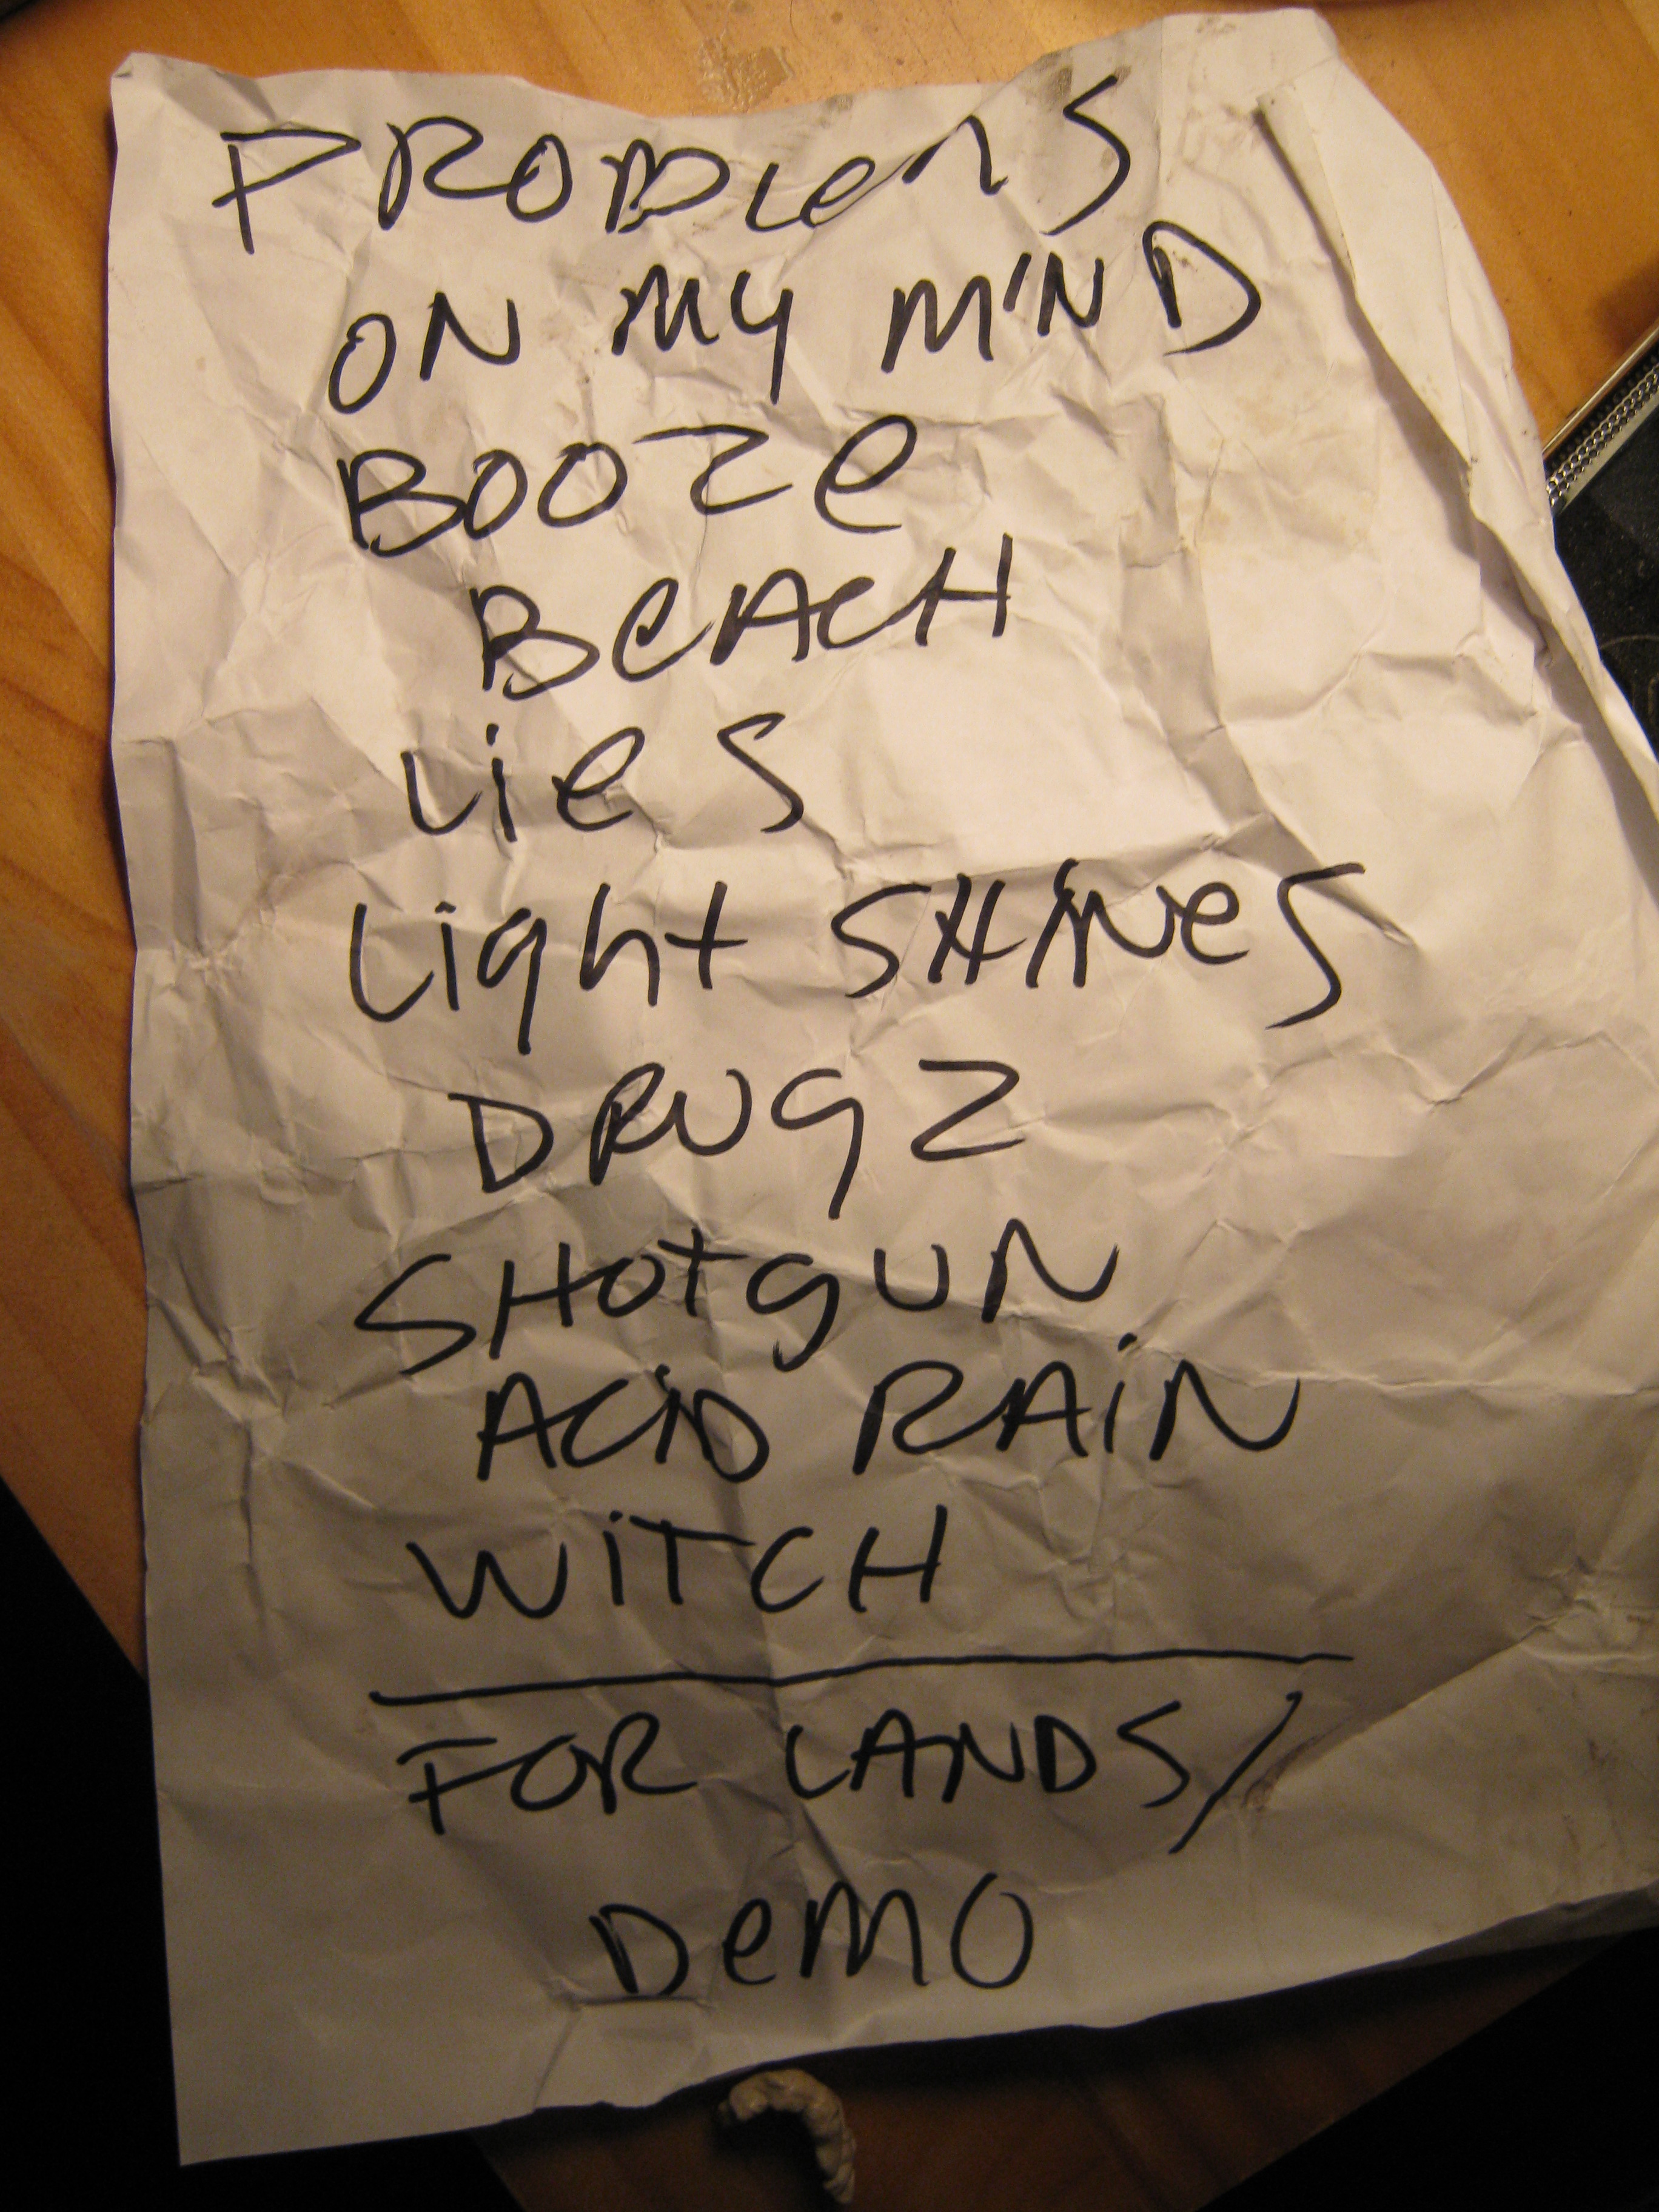 PROBLemS
ON MY MiND
BOOZe
BeACH
Lies
Light SHiNeS
DRUgZ
SHOtgUN
ACiD RAiN
WiTCH
FOR LANDS/
DeMO